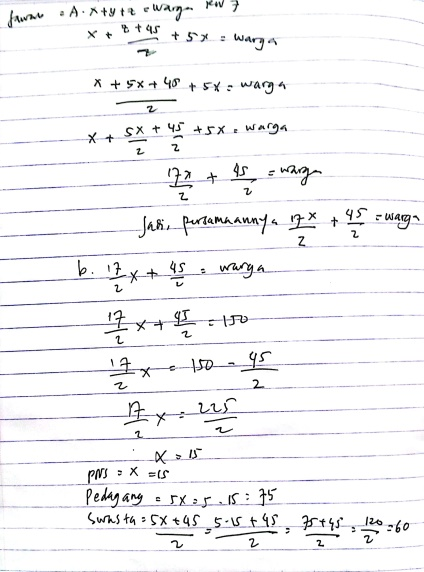 Jawab = A. x+y+z = warga RW 7
x + z+45/2 + 5x = warga
x + 5x + 45/2 + 5x = warga
x + 5x/2 + 45/2 + 5x = warga
17x/2 + 45/2 = warga
Jadi, persamaannya 17x/2 + 45/2 = warga
b. 17/2 x + 45/2 = warga
17/2 x + 45/2 = 150
17/2 x = 150 - 45/2
17/2 x = 225/2
x = 15
PNS = x = 15
Pedagang = 5x = 5 . 15 = 75
Swasta = 5x+45/2 = 5.15+45/2 = 75+45/2 = 120/2 = 60